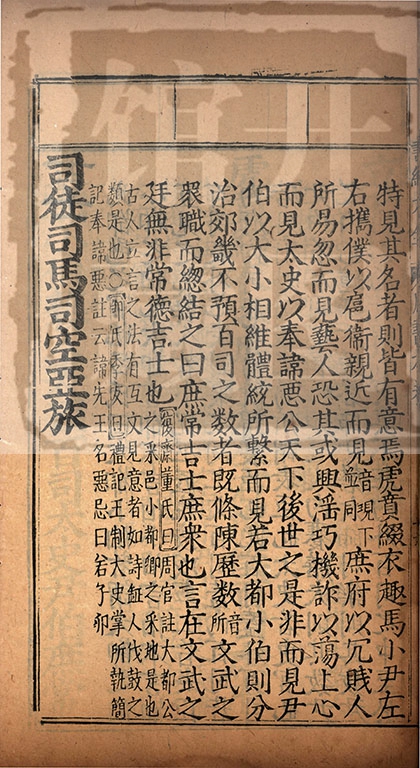 特見其名者則皆有意焉虎賁綴衣趣馬小尹左
右攜僕以扈衞親近而見音現下並同庶府以冗賤人
所易忽而見藝人恐其或興淫巧機詐以蕩上心
而見太史以奉諱惡公天下後世之是非而見尹
伯以大小相維體統所繫而見若大都小伯則分
治郊畿不預百司之数者既條陳歷数音所文武之
衆職而緫結之曰庶常吉士庶衆也言在文武之
廷無非常德吉士也復齋董氏曰周官註大都公
之采邑小都卿之采地是也
古人立言之法有互文見意者如詩鉦人伐鼓之
類是也○鄒氏季友曰禮記王制大史掌所執簡
記奉諱惡註云諱先王名惡忌日若子卯
司徒司馬司空亞旅